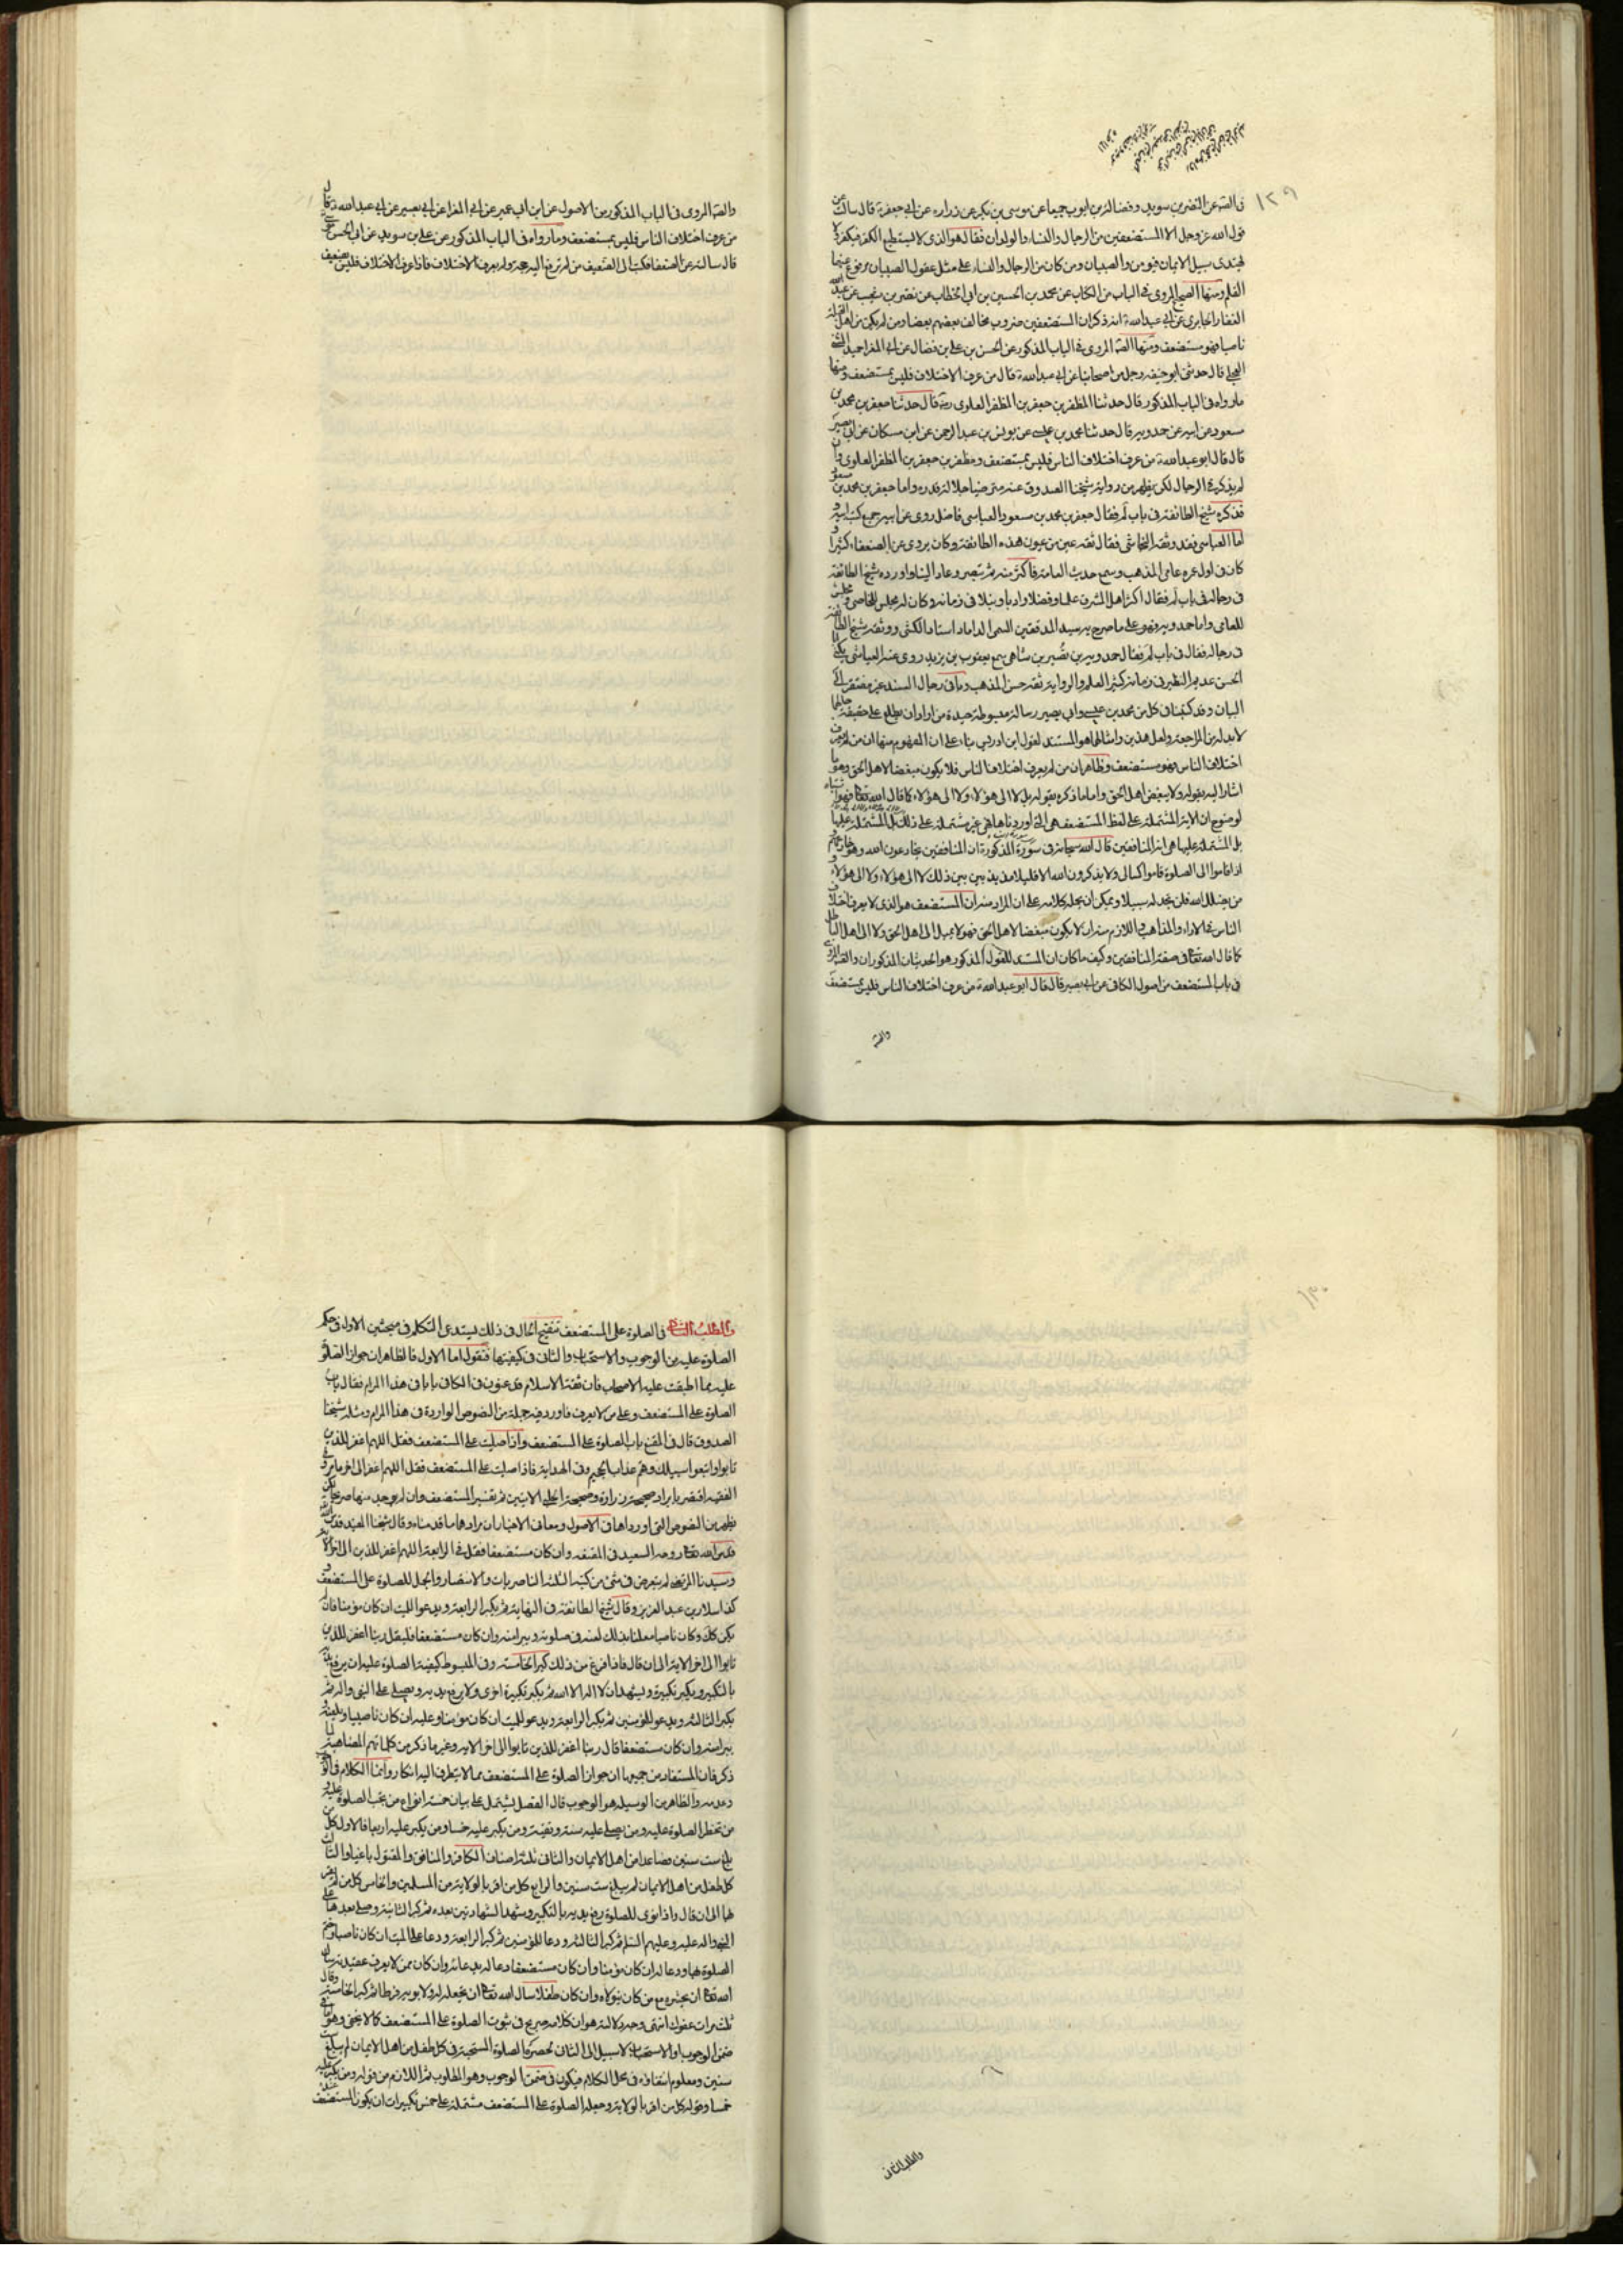 ١٢٩
فى الصه عن النضر بن سويد وفضالة بن ايوب جميعا عن موسى بن بكر عن زراره عن ابى جعفر ع قال سالته عن
قول الله عز وجل الا المستضعفين من الرجال والنساء والولدان فقال هو الذى لا يستطيع الكفر فيكفر ولا
يهتدى سبيل الايمان فيؤمن والصبيان ومن كان من الرجال والنساء على مثل عقول الصبيان مرفوع عنهما
القلم ومنها الصحيح المروى فى الباب من الكتاب عن محمد بن الحسين بن ابى الخطاب عن نضر بن شعيب عن عبد
الغفار الجابرى عن ابى عبد الله ع انه ذكر ان المستضعفين ضروب يخالف بعضهم بعضا ومن لم يكن من اهل القبلة
ناصبا فهو مستضعف ومنها الصه المروى فى الباب المذكور عن الحسن بن على بن فضال عن ابى المغرا حميد المثنى
العجلى قال حدثنى ابو حنيفه رجل من اصحابنا عن ابى عبد الله ع قال من عرف الاختلاف فليس بمستضعف ومنها
ما رواه فى الباب المذكور قال حدثنا المظفر بن جعفر بن المظفر العلوى ره قال حدثنا جعفر بن محمد بن
مسعود عن ابيه عن حمدويه قال حدثنا محمد بن عيسى عن يونس بن عبد الرحمن عن ابن مسكان عن ابى بصير
قال قال ابو عبد الله ع من عرف اختلاف الناس فليس بمستضعف ومظفر بن جعفر بن المظفر العلوى وان
لم يذكر فى الرجال لكن يظهر من رواية شيخنا الصدوق عنه مترضيا جلالة قدره واما جعفر بن محمد بن مسعود
فذكره شيخ الطائفة فى باب لم فقال جعفر بن محمد بن مسعود العياشى فاضل روى عن ابيه جميع كتب ابيه و
اما العياشى فقد وثقه النجاشى فقال ثقه عين من عيون هذه الطائفة وكان يروى عن الضعفاء كثيرا و
كان فى اول عمره عامى المذهب وسمع حديث العامة فاكثر منه ثم تبصر وعاد الينا واورده شيخ الطائفة
فى رجاله فى باب لم فقال اكثر اهل المشرق علما وفضلا وادبا ونبلا فى زمانه وكان له مجلس للخاصى ومجلس
للعامى واما حمدويه فهو على ما صرح به سيد المدققين السمى الداماد استاد الكشى ووثقه شيخ الطائفة
فى رجاله فقال فى باب لم فقال حمدويه بن نصير بن شاهى سمع يعقوب بن يزيد روى عنه العياشى يكنى ابا
الحسن عديم النظير فى زمانه كثير العلم والرواية ثقة حسن المذهب وباقى رجال السند غير مفتقر الى
البيان وقد كتبنا فى كل من محمد بن عيسى وابى بصير رسالة مبسوطة جيدة من اراد ان يطلع على حقيقة حالهما
لا بد له من المراجعة ولعل هذين وامثالهما هو المستند لقول ابن ادريس بناء على ان المفهوم منها ان من لم يعرف
اختلاف الناس فهو مستضعف وظاهر ان من لم يعرف اختلاف الناس فلا يكون مبغضا لاهل الحق وهو ما
اشار اليه بقوله ولا يبغض اهل الحق واما ما ذكره بقوله بل لا الى هؤلاء ولا الى هؤلاء كما قال الله تعالى فهو اشتباه
لوضوح ان الاية المشتملة على لفظ المستضعف هى التى اوردناها هى غير مشتملة على ذلك
بل المشتملة عليها هى اية المنافقين قال الله سبحانه فى سورة المذكورة ان المنافقين يخادعون الله وهو خادعهم و
اذا قاموا الى الصلوة قاموا كسالى ولا يذكرون الله الا قليلا مذبذبين بين ذلك لا الى هؤلاء ولا الى هؤلاء و
من يضلل الله فلن تجد له سبيلا ويمكن ان يحمل كلامه على ان المراد منه ان المستضعف هو الذى لا يعرف اختلاف
الناس فى الاراء والمذاهب واللازم منه ان لا يكون مبغضا لاهل الحق فهو لا يميل الى اهل الحق ولا الى اهل الباطل
كما قال الله تعالى فى صفة المنافقين وكيف ما كان ان المستند للقول المذكور هو الحديثان المذكوران والصه المروى
فى باب المستضعف من اصول الكافى عن ابى بصير قال قال ابو عبد الله ع من عرف اختلاف الناس فليس بمستضعف
والصه
والصه المروى فى الباب المذكور من الاصول عن ابن ابى عمير عن ابى المغرا عن ابى بصير عن ابى عبد الله ع قال
من عرف اختلاف الناس فليس بمستضعف وما رواه فى الباب المذكور عن على بن سويد عن ابى الحسن موسى ع
قال سالته عن الضعفاء فكتب الى الضعيف من لم ترفع اليه حجة ولم يعرف الاختلاف فاذا عرف الاختلاف فليس بضعيف
١٣٠
والمطلب الثانى
والمطلب الثانى فى الصلوة على المستضعف تنقيح الحال فى ذلك يستدعى التكلم فى مبحثين الاول فى حكم
الصلوة عليه من الوجوب والاستحباب والثانى فى كيفيتها فنقول اما الاول فالظاهر ان جواز الصلوة
عليه مما اطبقت عليه الاصحاب فان ثقة الاسلام قد عنون فى الكافى بابا فى هذا المرام فقال باب
الصلوة على المستضعف وعلى من لا يعرف فاورد فيه جملة من النصوص الواردة فى هذا المرام ومثله شيخنا
الصدوق قال فى المقنع باب الصلوة على المستضعف واذا صليت على المستضعف فقل اللهم اغفر للذين
تابوا واتبعوا سبيلك وقهم عذاب الجحيم وفى الهداية فاذا صليت على المستضعف فقل اللهم اغفر الى اخر ما مر وفى
الفقيه اقتصر بايراد صحيحة زرارة وصحيحة الحلبى الاتيتين ثم تفسير المستضعف وان لم يوجد منها صريحا لكن
يظهر من النصوص التى اورداها فى الاصول ومعانى الاخبار ان مرادهما ما قدمناه وقال شيخنا المفيد
قدس الله تعالى روحه السعيد فى المقنعه وان كان مستضعفا فقل فى الرابعة اللهم اغفر للذين الى اخر الاية
وسيدنا المرتضى لم يتعرض فى شئ من كتبه الثلثة الناصريات والانتصار والجمل للصلوة على المستضعف و
كذا سلار بن عبد العزيز وقال شيخ الطائفة فى النهاية ثم يكبر الرابعة ويدعو للميت ان كان مؤمنا فان لم
يكن كك وكان ناصبا معلنا بذلك لعنه فى صلوته وتبرا منه وان كان مستضعفا فليقل ربنا اغفر للذين
تابوا الى اخر الاية الى ان قال فاذا فرغ من ذلك كبر الخامسة وفى المبسوط كيفية الصلوة عليه ان يرفع يديه
بالتكبير ويكبر تكبيرة ويشهد ان لا اله الا الله ثم يكبر تكبيرة اخرى ولا يرفع يديه ويصلى على النبى واله ثم
يكبر الثالثة ويدعو للمؤمنين ثم يكبر الرابعة ويدعو للميت ان كان مؤمنا وعليه ان كان ناصبيا ويلعنه و
يبرا منه وان كان مستضعفا قال ربنا اغفر للذين تابوا الى اخر الاية وغير ما ذكر من كلماتهم المضاهية لما
ذكر فان المستفاد من جميعها ان جواز الصلوة على المستضعف مما لا يتطرق اليه انكار وانما الكلام فى الوجوب
وعدمه والظاهر من الوسيلة هو الوجوب قال الفصل يشتمل على بيان خمسة انواع من يجب الصلوة عليه و
من تحظر الصلوة عليه ومن يصلى عليه سنة وتقية ومن يكبر عليه خمسا ومن يكبر عليه اربعا فالاول كل من
بلغ ست سنين فصاعدا من اهل الايمان والثانى ثلثة اصناف الكافر والمنافق والمقتول باغيا والثالث
كل طفل من اهل الايمان لم يبلغ ست سنين والرابع كل من اقر بالولاية من المسلمين والخامس كل من لم يقر
بها الى ان قال واذا نوى للصلوة رفع يديه بالتكبير وشهد الشهادتين بعده ثم كبر الثانية وصلى بعدها على
النبى واله عليه وعليهم السلم ثم كبر الثالثة ودعا للمؤمنين ثم كبر الرابعة ودعا على الميت ان كان ناصبا وختم
الصلوة بها ودعا له ان كان مؤمنا وان كان مستضعفا دعا له بدعائه وان كان ممن لا يعرف عقيدته سال
الله تعالى ان يحشره مع من كان يتولاه وان كان طفلا سال الله تعالى ان يجعله له ولابويه فرطا ثم كبر الخامسة وقال
ثلث مرات عفوك انتهى وجه دلالته هو ان كلامه صريح فى ثبوت الصلوة على المستضعف كما لا يخفى وهو اما فى
ضمن الوجوب او الاستحباب لا سبيل الى الثانى لحصره الصلوة المستحبة فى كل طفل من اهل الايمان لم يبلغ ست
سنين ومعلوم انتفاؤه فى محل الكلام فيكون فى ضمن الوجوب وهو المطلوب ثم اللازم من قوله ومن يكبر عليه
خمسا وقوله كل من اقر بالولاية وجعله الصلوة على المستضعف مشتملة على خمس تكبيرات ان يكون المستضعف